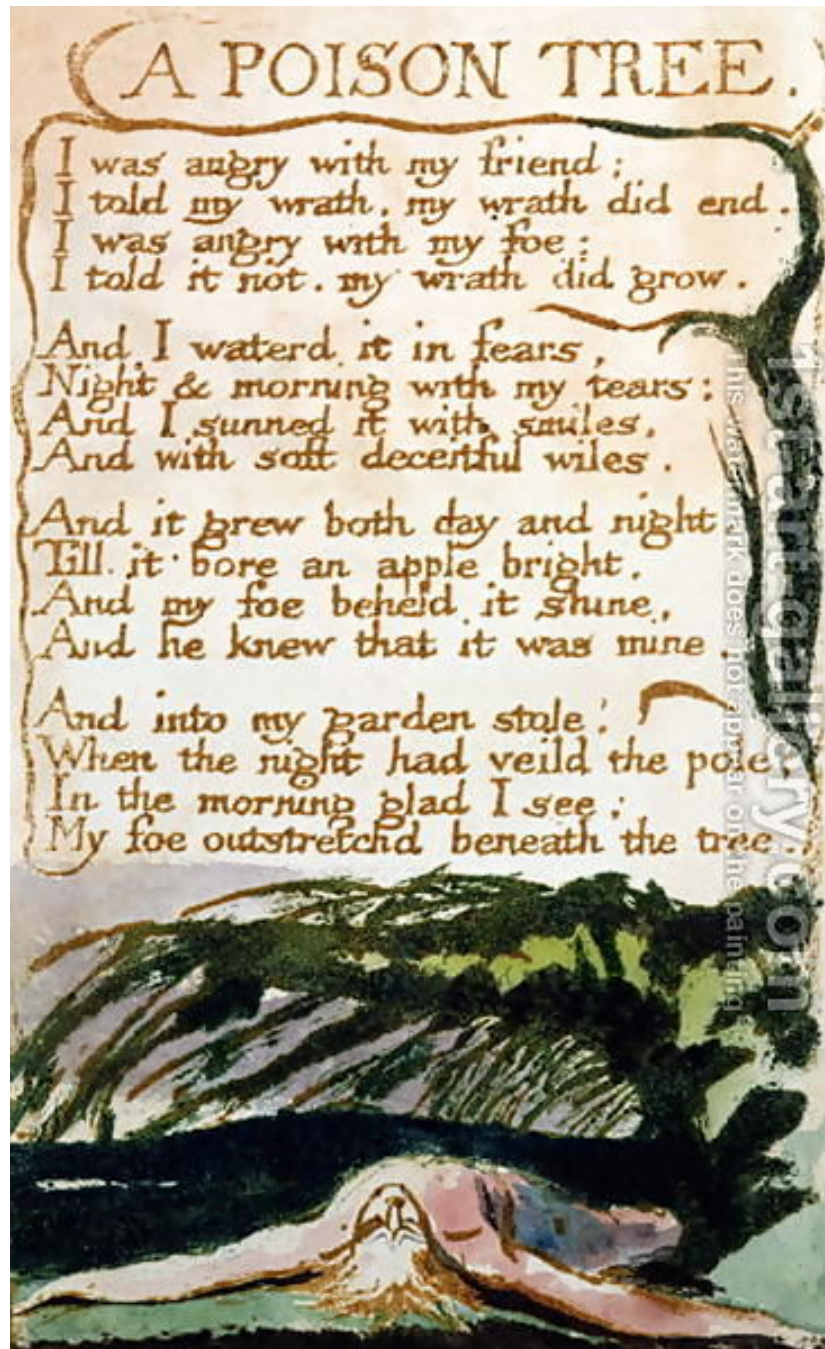 A POISON TREE.
I was angry with my friend:
I told my wrath, my wrath did end.
I was angry with my foe:
I told it not. my wrath did grow.
And I waterd it in fears,
Night & morning with my tears:
And I sunned it with smiles,
And with soft deceitful wiles.
And it grew both day and night
Till it bore an apple bright.
And my foe beheld it shine,
And he knew that it was mine.
And into my garden stole:
When the night had veild the pole;
In the morning glad I see:
My foe outstretchd beneath the tree.
1st-art-gallery.com
This watermark does not appear on the painting